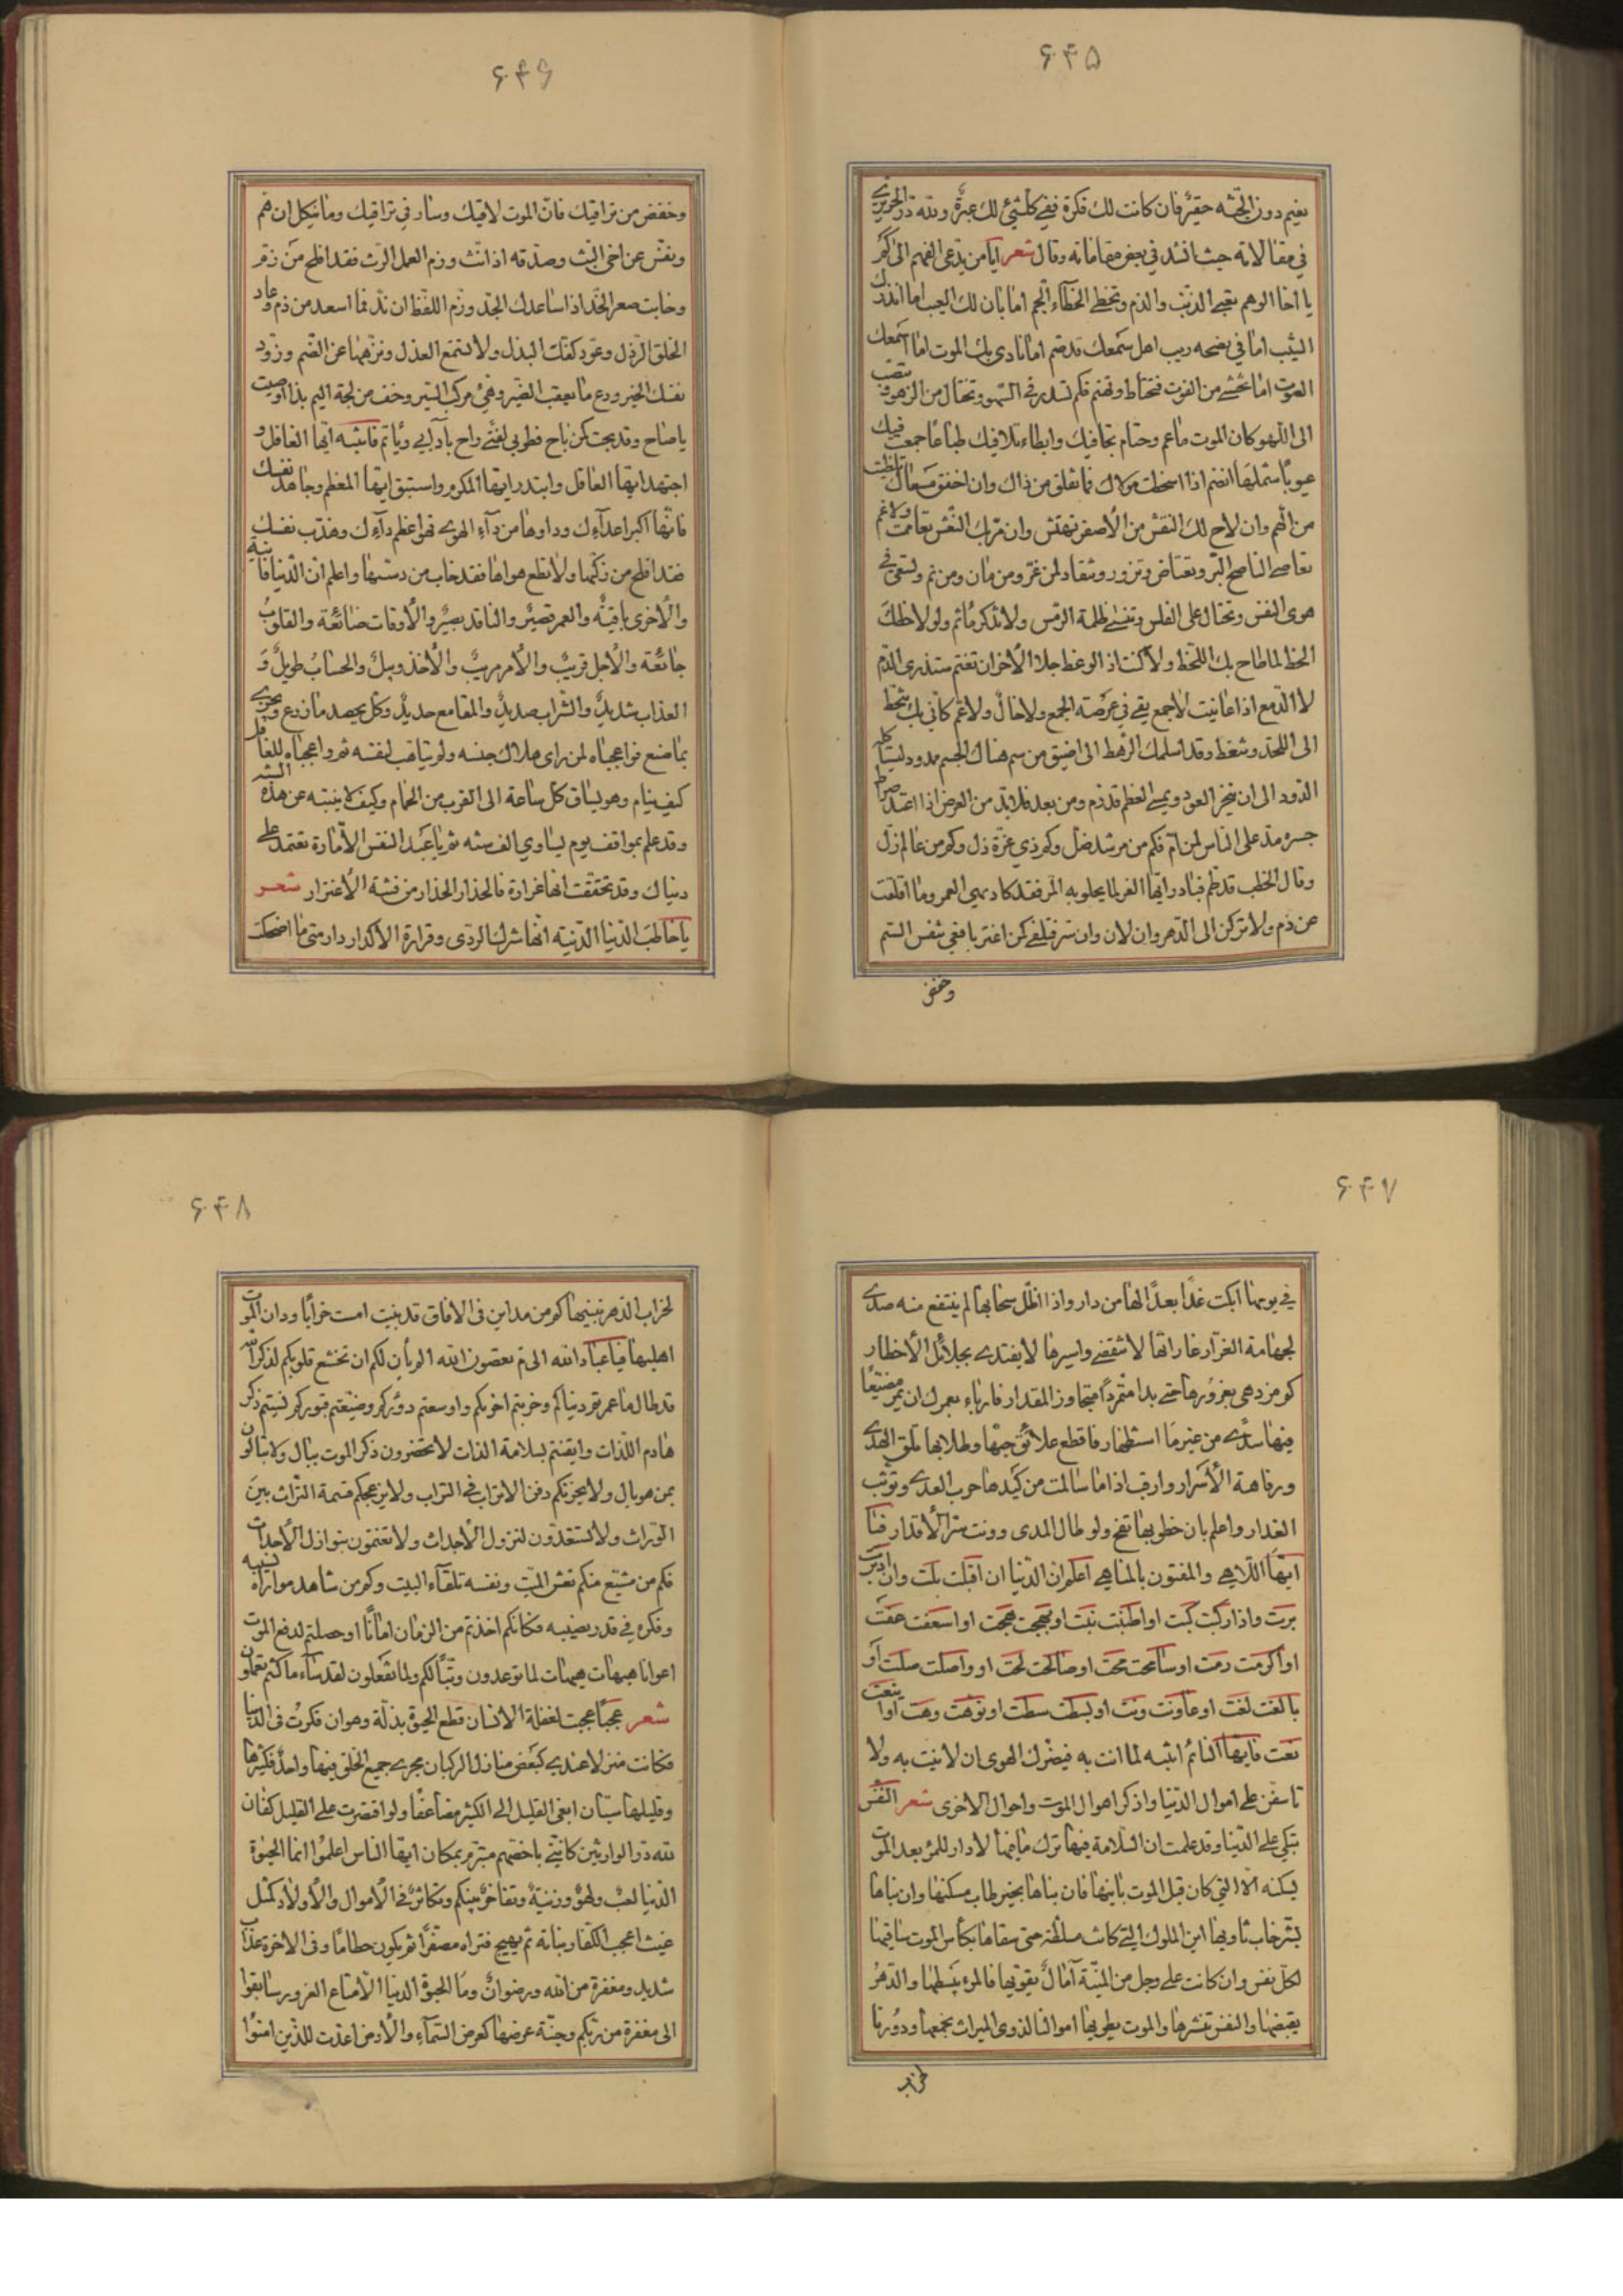 ۶۴۵
نعيم دون الجثه حقير فان كانت لك فكرة ففي كلشيئ لك عبرة ولله در الحريري
في مقالاته حيث انشد في بعض مقاماته وقال شعر ايا من يدعى الفهم الى كم
يا اخا الوهم تعبى الذنب والذم وتخطى الخطاء الجم اما بان لك العيب اما انذرك
الشيب اما في نصحه ريب اهل سمعك قد صم اما نادى بك الموت اما اسمعك
الصوت اما تخشى من الفوت فتحتاط وتهتم فكم تسدر في السهو وتختال من الزهو وتنصب
الى اللهو كان الموت ما عم وحتام تجافيك وابطاء تلافيك طباعا جمعت فيك
عيوبا شملها انضم اذا اسخطت مولاك فما تقلق من ذاك وان اخفق مسعاك تلظيت
من الهم وان لاح لك النقش من الأصفر تهتش وان مر بك النعش تغاممت ولا غم
تعاصى الناصح البر وتعتاض وتزور وتنقاد لمن غر ومن مان ومن نم وتسعى في
هوى النفس وتحتال على الفلس وتنسى ظلمة الرمس ولا تذكر ما ثم ولو لاحظك
الحظ لما طاح بك اللحظ ولا كنت اذ الوعظ جلا الأحزان تغتم ستذرى الدم
لا الدمع اذا عاينت لا جمع يقي في عرصة الجمع ولا خال ولا عم كاني بك تنحط
الى اللحد وتنغط وقد اسلمك الرهط الى اضيق من سم هناك الجسم ممدود ليستاكله
الدود الى ان ينخر العود ويمسى العظم قد رم ومن بعد فلا بد من العرض اذا اعتد صراط
جسره مد على الناس لمن ام فكم من مرشد ضل وكم ذي عزة ذل وكم من عالم زل
وقال الخطب قد طم فبادر ايها الغر لما يحلو به المر فقد كاد يهي العمر وما اقلعت
عن ذم ولا تركن الى الدهر وان لان وان سر فتلفى كمن اغتر بافعى تنفث السم
وخفض
۶۴۶
وخفض من تراقيك فان الموت لاقيك وسار في تراقيك وما ينكل ان هم
ونفس عن اخى البث وصدقه اذا نث ورم العمل الرث فقد افلح من رم
وجانب صعر الخد اذا ساعدك الجد وزم اللفظ ان ند فما اسعد من زم وعاد
الخلق الرذل وعود كفك البذل ولا تستمع العذل ونزهها عن الضم وزود
نفسك الخير ودع ما يعقب الضير وهيئ مركب السير وخف من لجة اليم بذا اوصيت
يا صاح وقد بحت كمن باح فطوبى لفتى راح بآدابي ويأتم فانتبه ايها الغافل و
اجتهد ايها العاقل وابتدر ايها المكرم واستبق ايها المعظم وجاهد نفسك
فانها اكبر اعداءك وداوها من داء الهوى فهو اعظم داءك وهذب نفسك
فقد افلح من زكيها ولا تطع هواها فقد خاب من دسيها واعلم ان الدنيا فانية
والأخرى باقية والعمر قصير والناقد بصير والأوقات ضائعة والقلوب
جائعة والأجل قريب والأمر مريب والأخذ وبيل والحساب طويل و
العذاب شديد والشراب صديد والمقامع حديد وكل يحصد ما زرع ويجزى
بما صنع فواعجباه لمن راى هلاك جنسه ولم يتاهب لنفسه ثم واعجباه للغافل
كيف ينام وهو يساق كل ساعة الى القرب من الحمام وكيف لا ينتبه عن هذه السنة
وقد علم بمواقف يوم يساوي الف سنه ثم يا عبد النفس الأمارة تعتمد على
دنياك وقد تحققت انها غرارة فالحذار الحذار من فتنة الأغترار شعر
يا خاطب الدنيا الدنيه انها شرك الردى وقرارة الأكدار دار متى ما اضحكت
۶۴۷
في يومها ابكت غدا بعدا لها من دار واذا اظل سحابها لم ينتفع منه صدى
لجهامة الغرار غاراتها لا تنقضى واسيرها لا يفتدى بجلائل الأخطار
كم مزدهى بغرورها حتى بدا متمردا متجاوز المقدار فارباء بعمرك ان يمر مضيعا
فيها سدى من غير ما استظهار فاقطع علائق حبها وطلابها تلق الهدى
ورفاهة الأسرار وارقب اذا ما سالمت من كيدها حرب العدى وتوثب
الغدار واعلم بان خطوبها تفجى ولو طال المدى وونت سرا الأقدار فيا
ايها اللاهي والمفتون بالمناهي اعلم ان الدنيا ان اقبلت بلت وان ادبرت
برت واذا ركبت كبت او اطنبت نبت او بهجت هجت او اسعفت عفت
او اكرمت رمت او سامحت محت او صالحت لحت او واصلت صلت او
بالغت لغت او عاونت ونت او بسطت سطت او نوهت وهت او اينعت
نعت فايها النائم انتبه لما انت به فيضرك الهوى ان لا نيت به ولا
تاسفن على اموال الدنيا واذكر اهوال الموت واحوال الاخرى شعر النفس
تبكي على الدنيا وقد علمت ان السلامة فيها ترك ما فيها لا دار للمرء بعد الموت
يسكنه الا التي كان قبل الموت بانيها فان بناها بخير طاب مسكنها وان بناها
بشر خاب ثاويها اين الملوك التي كانت مسلطنه حتى سقاها بكأس الموت ساقيها
لكل نفس وان كانت على وجل من المنية آمال تقويها فالمرء يبسطها والدهر
يقبضها والنفس تنشرها والموت يطويها اموالنا لذوى الميراث نجمعها ودورنا
لخراب
۶۴۸
لخراب الدهر نبنيها كم من مداين فى الافاق قد بنيت امست خرابا ودان الموت
اهليها فيا عباد الله الى م تعصون الله الم يأن لكم ان تخشع قلوبكم لذكر الله
قد طال ما عمرتم دنياكم وخربتم اخريكم واوسعتم دوركم وضيقتم قبوركم نسيتم ذكر
هادم اللذات وايقنتم بسلامة الذات لا تحضرون ذكر الموت ببال ولا تبالون
بمن هو بال ولا يحزنكم دفن الاتراب فى التراب ولا يزعجكم قسمة التراث بين
الوراث ولا تستعدون لنزول الأجداث ولا تغتمون بنوازل الأحداث
فكم من مشيع منكم نعش الميت ونفسه تلقاء البيت وكم من شاهد مواراة نسيبه
وفكره في قدر نصيبه فكانكم اخذتم من الزمان امانا او حصلتم لدفع الموت
اعوانا هيهات هيهات لما توعدون وتبا لكم ولما تفعلون لقد ساء ما كنتم تعملون
شعر عجبا عجبت لغفلة الانسان قطع الحيوة بذلة وهوان فكرت فى الدنيا
فكانت منزلا عندي كبعض منازل الركبان مجرى جميع الخلق فيها واحد فكثيرها
وقليلها سيان ابغى القليل الى الكثير مضاعفا ولو اقتصرت على القليل كفان
لله در الوارثين كانني باخصهم متبرم بمكان ايها الناس اعلموا انما الحيوة
الدنيا لعب ولهو وزينة وتفاخر بينكم وتكاثر في الأموال والأولاد كمثل
غيث اعجب الكفار نباته ثم يهيج فتراه مصفرا ثم يكون حطاما وفى الاخرة عذاب
شديد ومغفرة من الله ورضوان وما الحيوة الدنيا الا متاع الغرور سابقوا
الى مغفرة من ربكم وجنة عرضها كعرض السماء والأرض اعدت للذين امنوا